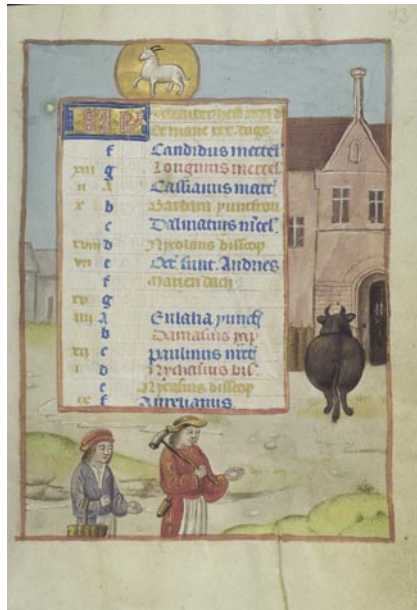 xxxi d
De mane xxx. dage
f Candidus mertel
xiii g Longinus mertel
ii A Cassianus mart
x b Barbara yuncfrou
c Dalmatius
xviii d Nicolaus bisscop
vii e Oct. sunt. Andries
f Marien dach
xv g
iiii A Eulalia yunch
b Damasius pap
xii c Paulinus
d Nychasius bis
e bisscop
ix f Aurelianus